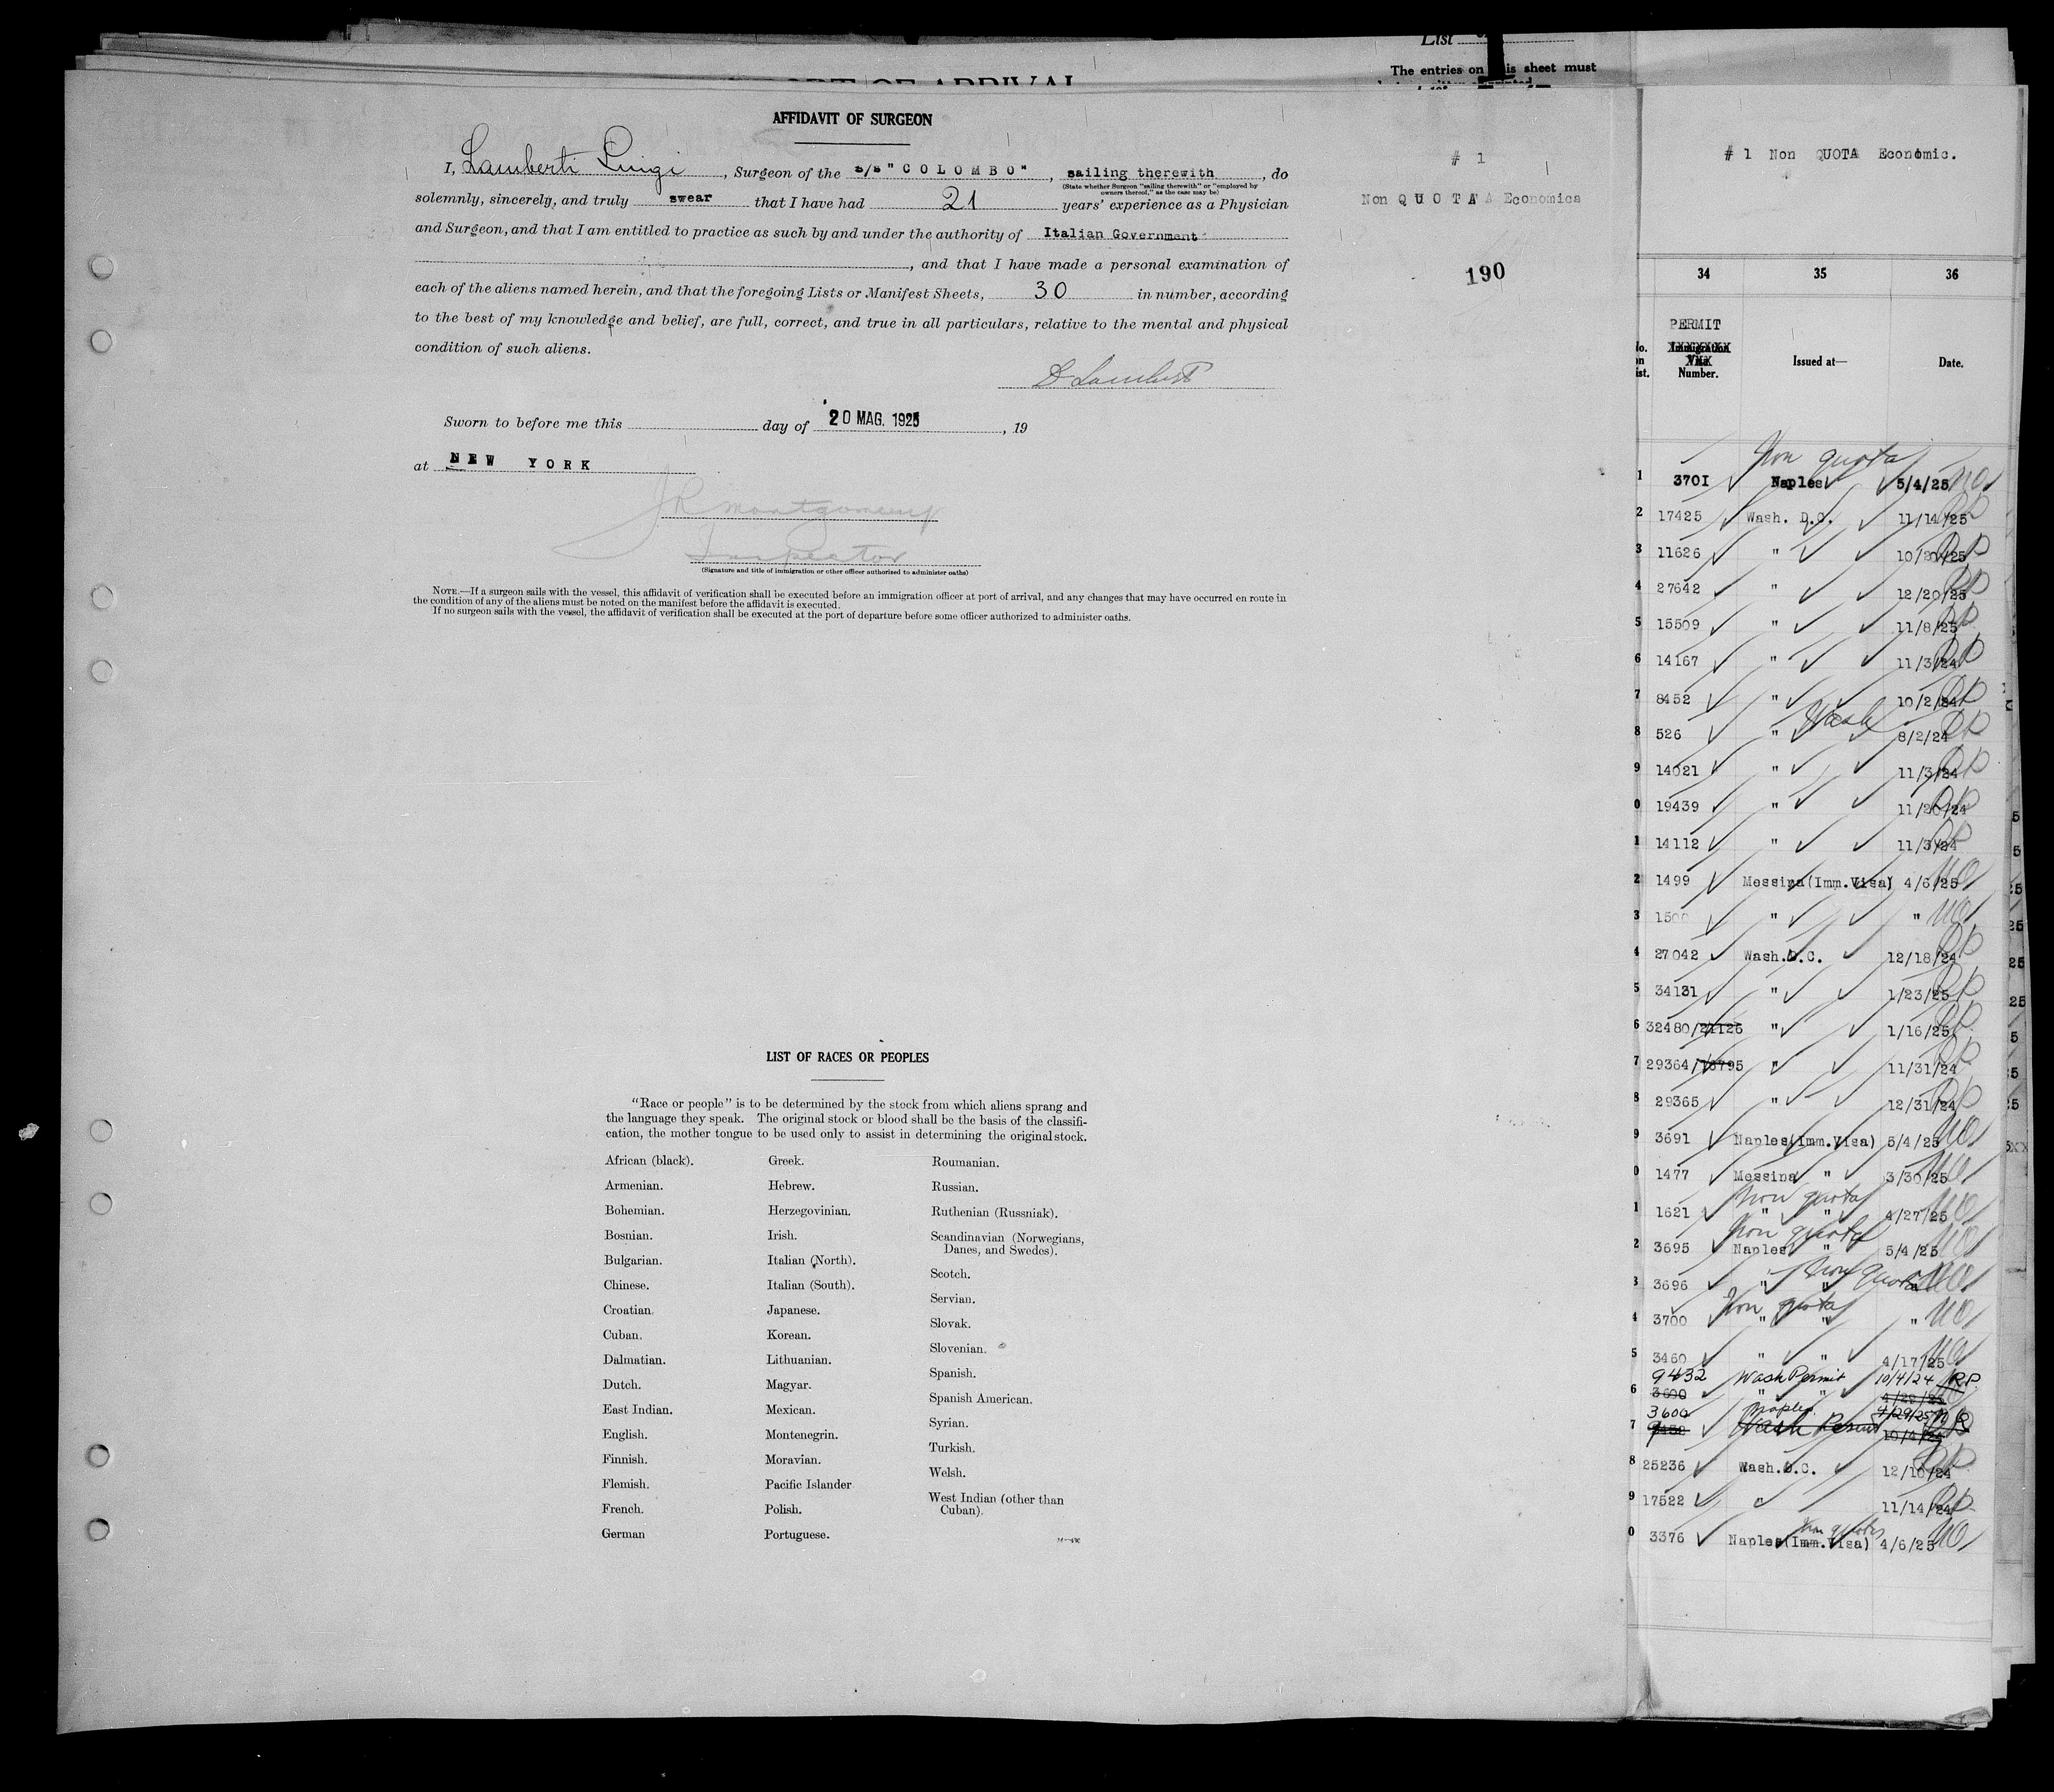 List
The entries on this sheet must
AFFIDAVIT OF SURGEON
I, Lamberti Luigi, Surgeon of the s/s "COLOMBO", sailing therewith, do
(State whether Surgeon "sailing therewith" or "employed by
owners thereof," as the case may be)
solemnly, sincerely, and truly swear that I have had 21 years' experience as a Physician
and Surgeon, and that I am entitled to practice as such by and under the authority of Italian Government
, and that I have made a personal examination of
each of the aliens named herein, and that the foregoing Lists or Manifest Sheets, 30 in number, according
to the best of my knowledge and belief, are full, correct, and true in all particulars, relative to the mental and physical
condition of such aliens.
Sworn to before me this day of 20 MAG. 1925, 19
at NEW YORK
JR Montgomery
Inspector
(Signature and title of immigration or other officer authorized to administer oaths)
NOTE.—If a surgeon sails with the vessel, this affidavit of verification shall be executed before an immigration officer at port of arrival, and any changes that may have occurred en route in
the condition of any of the aliens must be noted on the manifest before the affidavit is executed.
If no surgeon sails with the vessel, the affidavit of verification shall be executed at the port of departure before some officer authorized to administer oaths.
# 1
Non QUOTA Economica
190
LIST OF RACES OR PEOPLES
"Race or people" is to be determined by the stock from which aliens sprang and
the language they speak. The original stock or blood shall be the basis of the classifi-
cation, the mother tongue to be used only to assist in determining the original stock.
African (black).
Armenian.
Bohemian.
Bosnian.
Bulgarian.
Chinese.
Croatian.
Cuban.
Dalmatian.
Dutch.
East Indian.
English.
Finnish.
Flemish.
French.
German
Greek.
Hebrew.
Herzegovinian.
Irish.
Italian (North).
Italian (South).
Japanese.
Korean.
Lithuanian.
Magyar.
Mexican.
Montenegrin.
Moravian.
Pacific Islander
Polish.
Portuguese.
Roumanian.
Russian.
Ruthenian (Russniak).
Scandinavian (Norwegians,
Danes, and Swedes).
Scotch.
Servian.
Slovak.
Slovenian.
Spanish.
Spanish American.
Syrian.
Turkish.
Welsh.
West Indian (other than
Cuban).
# 1 Non QUOTA Economic.
34 35 36
PERMIT
Immigration
Visa
Number.
Issued at—
Date.
Non quota
1 3701 Naples 5/4/25
2 17425 Wash. D.C. 11/14/25
3 11626 " 10/20/25
4 27642 " 12/20/25
5 15509 " 11/8/25
6 14167 " 11/3/24
7 8452 " 10/2/24
Wash
8 526 " 8/2/24
9 14021 " 11/3/24
0 19439 " 11/20/24
1 14112 " 11/3/24
2 1499 Messina(Imm.Visa) 4/6/25
3 1500 " "
4 27042 Wash.D.C. 12/18/24
5 34131 " 1/23/25
6 32480/21126 " 1/16/25
7 29364/ " 11/31/24
8 29365 " 12/31/24
9 3691 Naples(Imm.Visa) 5/4/25
0 1477 Messina " 3/30/25
Non quota
1 1621 " " 4/27/25
Non quota
2 3695 Naples " 5/4/25
Non quota
3 3696 " " "
Non quota
4 3700 " " "
5 3460 " " 4/17/25
9432 Wash Permit 10/4/24 RP
6 3600 " " 4/29/25
3600 Naples 4/29/25
7 Wash Permit 10/4/24
8 25236 Wash.D.C. 12/10/24
9 17522 " 11/14/24
Non quota
0 3376 Naples(Imm.Visa) 4/6/25